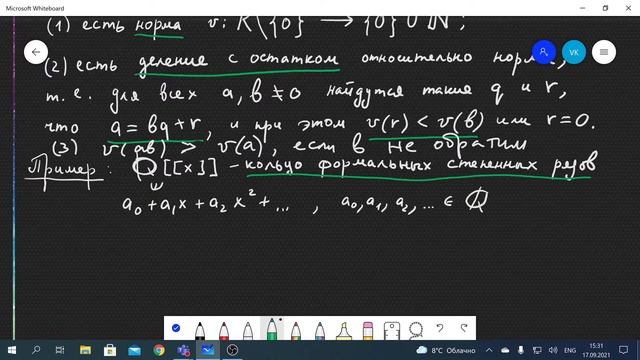 Microsoft Whiteboard
(1) есть норма v: R\{0} → {0} ∪ ℕ ;
(2) есть деление с остатком относительно нормы,
т.е. для всех a, b ≠ 0 найдутся такие q и r,
что a = bq + r, и при этом v(r) < v(b) или r = 0.
(3) v(ab) > v(a), если b не обратим
Пример: ℚ[[x]] - кольцо формальных степенных рядов
a₀ + a₁x + a₂x² + ... , a₀, a₁, a₂, ... ∈ ℚ
VK
8°C Облачно
ENG
15:31
17.09.2021